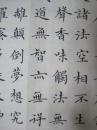 諸法空相不生
聲香味觸法無
道無智亦無得
離顛倒夢想究